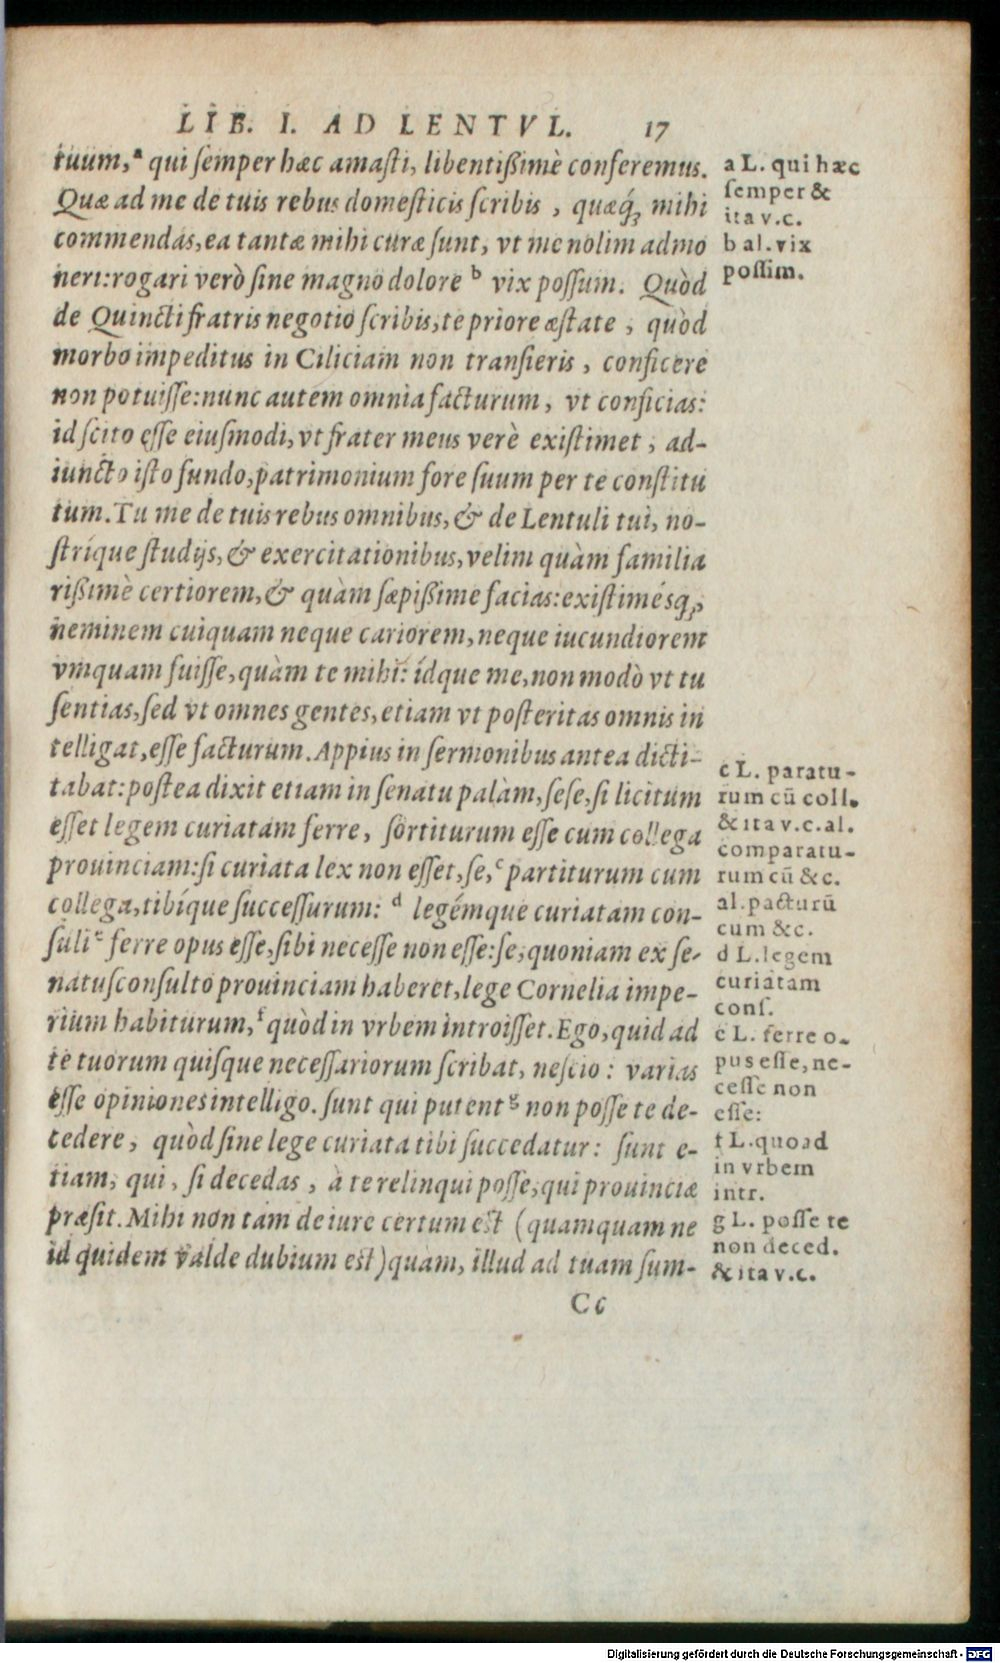 LIB. I. AD LENTVL. 17
tuum,ᵃ qui ſemper hæc amaſti, libentißimè conferemus.
Quæ ad me de tuis rebus domeſticis ſcribis, quæq́; mihi
commendas, ea tantæ mihi curæ ſunt, vt me nolim admo
neri: rogari verò ſine magno dolore ᵇ vix poſſum. Quòd
de Quincti fratris negotio ſcribis, te priore æſtate, quòd
morbo impeditus in Ciliciam non tranſieris, conficere
non potuiſſe: nunc autem omnia facturum, vt conficias:
id ſcito eſſe eiuſmodi, vt frater meus verè exiſtimet, ad-
iuncto iſto fundo, patrimonium fore ſuum per te conſtitu
tum. Tu me de tuis rebus omnibus, & de Lentuli tui, no-
ſtríque ſtudijs, & exercitationibus, velim quàm familia
rißimè certiorem, & quàm ſæpißime facias: exiſtimésq́;
neminem cuiquam neque cariorem, neque iucundiorem
vmquam fuiſſe, quàm te mihi: ídque me, non modò vt tu
ſentias, ſed vt omnes gentes, etiam vt poſteritas omnis in
telligat, eſſe facturum. Appius in ſermonibus antea dicti-
tabat: poſtea dixit etiam in ſenatu palàm, ſeſe, ſi licitum
eſſet legem curiatam ferre, ſortiturum eſſe cum collega
prouinciam: ſi curiata lex non eſſet, ſe, ᶜ partiturum cum
collega, tibíque ſucceſſurum: ᵈ legémque curiatam con-
ſuli ᵉ ferre opus eſſe, ſibi neceſſe non eſſe: ſe, quoniam ex ſe-
natuſconſulto prouinciam haberet, lege Cornelia impe-
rium habiturum, ᶠ quòd in vrbem introiſſet. Ego, quid ad
te tuorum quiſque neceſſariorum ſcribat, neſcio: varias
eſſe opiniones intelligo. ſunt qui putent ᵍ non poſſe te de-
cedere, quòd ſine lege curiata tibi ſuccedatur: ſunt e-
tiam, qui, ſi decedas, à te relinqui poſſe, qui prouinciæ
præſit. Mihi non tam de iure certum est (quamquam ne
id quidem valde dubium est) quam, illud ad tuam ſum-
Cc
a L. qui hæc
ſemper &
ita v.c.
b al. vix
poſſim.
c L. paratu-
rum cū coll.
& ita v.c. al.
comparatu-
rum cū &c.
al. pacturū
cum &c.
d L. legem
curiatam
conſ.
e L. ferre o-
pus eſſe, ne-
ceſſe non
eſſe:
f L. quoad
in vrbem
intr.
g L. poſſe te
non deced.
& ita v.c.
Digitalisierung gefördert durch die Deutsche Forschungsgemeinschaft - DFG